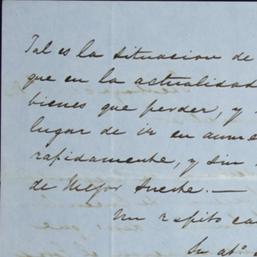 Tal es la situacion de
que en la actualidad
bienes que perder, y
lugar de ir en aume
rapidamente, y sin
de Mejor Suerte.—
Me repito
Su at°.